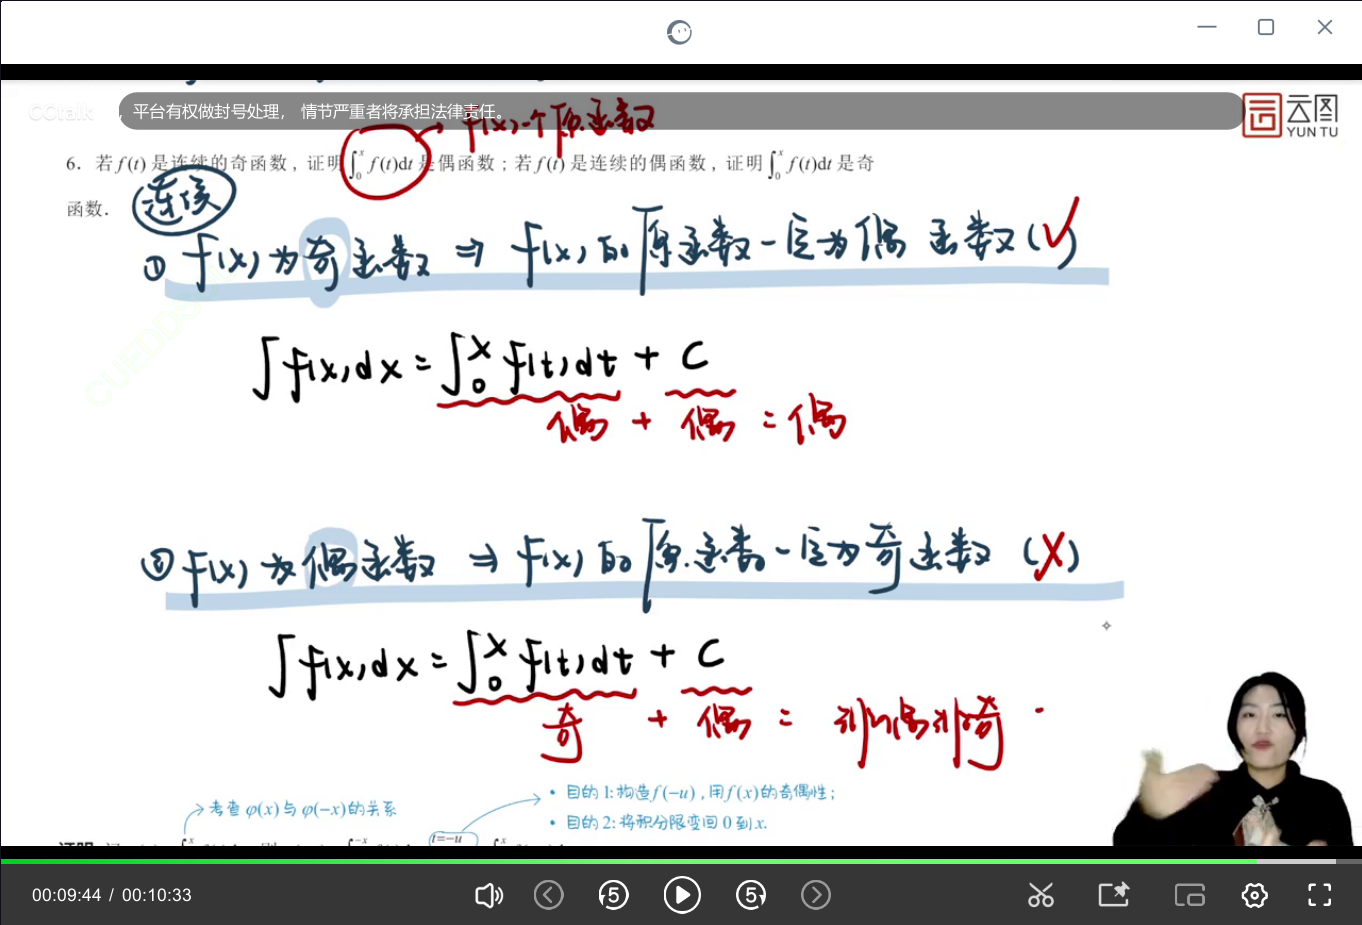 CCtalk
，平台有权做封号处理， 情节严重者将承担法律责任。
云图
YUN TU
f(x)一个原函数
6. 若 f(t) 是连续的奇函数，证明∫₀ˣ f(t)dt 是偶函数；若 f(t) 是连续的偶函数，证明∫₀ˣ f(t)dt 是奇
函数．
连续
① f(x)为奇函数 ⇒ f(x)的原函数一定为偶函数(√)
∫f(x)dx = ∫₀ˣ f(t)dt + C
偶 + 偶 = 偶
② f(x)为偶函数 ⇒ f(x)的原函数一定为奇函数 (X)
∫f(x)dx = ∫₀ˣ f(t)dt + C
奇 + 偶 = 非偶非奇.
考查 φ(x)与 φ(−x)的关系
• 目的 1:构造 f(−u)，用 f(x)的奇偶性；
• 目的 2:将积分限变回 0 到 x.
t=−u
00:09:44 / 00:10:33
5
5